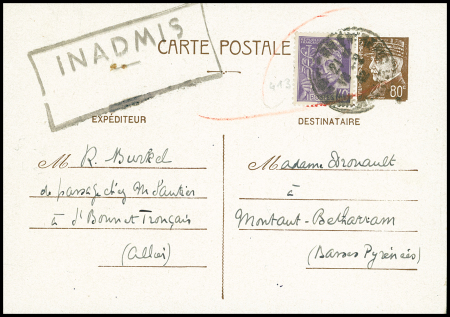 INADMIS
CARTE POSTALE
80c
413
EXPÉDITEUR
M. R. Burkel
de passage chez M. Sautier
à St Bonnet Tronçais
(Allier)
DESTINATAIRE
Madame Dronault
à
Montaut-Betharram
(Basses Pyrénées)